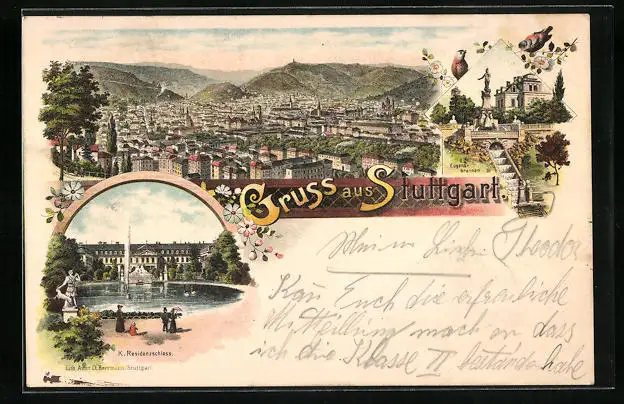 Eugens-
brunnen
Gruss aus Stuttgart.
Meine Lieben Theodor
Kan Euch die erfreuliche
Mitteilung mach en dass
ich die Klasse II bestanden habe
K. Residenzschloss.
Lith. Anst. D. Herrmann, Stuttgart